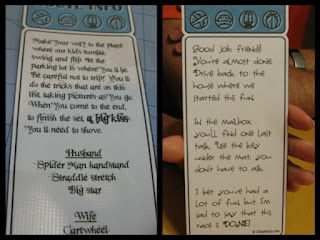 INFO
Make your way to the place
where our kids tumble,
swing and flip. In the
parking lot is where you'll be.
Be careful not to trip! You'll
do the tricks that are on this
list taking pictures as you go.
When you come to the end,
to finish the set, a big kiss
You'll need to show.
Husband
Spider Man handstand
Straddle stretch
Big star
Wife
Cartwheel
Good job friends!
You're almost done.
Drive back to the
house where we
started this fun.
In the mailbox
you'll find one last
task. Use the key
under the mat. You
don't have to ask.
I bet you've had a
Lot of fun but I'm
sad to say that this
race is DONE!